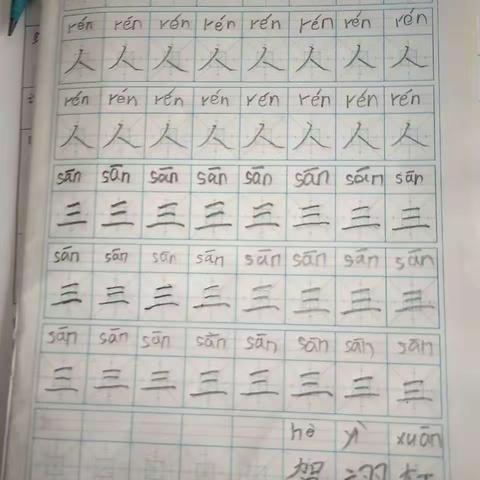 rén rén rén rén rén rén rén rén
人 人 人 人 人 人 人 人
rén rén rén rén rén rén rén rén
人 人 人 人 人 人 人 人
sān sān sān sān sān sān sān sān
三 三 三 三 三 三 三 三
sān sān sān sān sān sān sān sān
三 三 三 三 三 三 三 三
sān sān sān sān sān sān sān sān
三 三 三 三 三 三 三 三
hè yì xuān